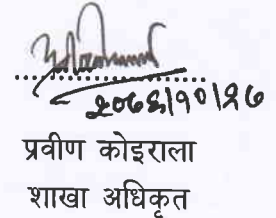 २०७६|१०|२७
प्रवीण कोइराला
शाखा अधिकृत